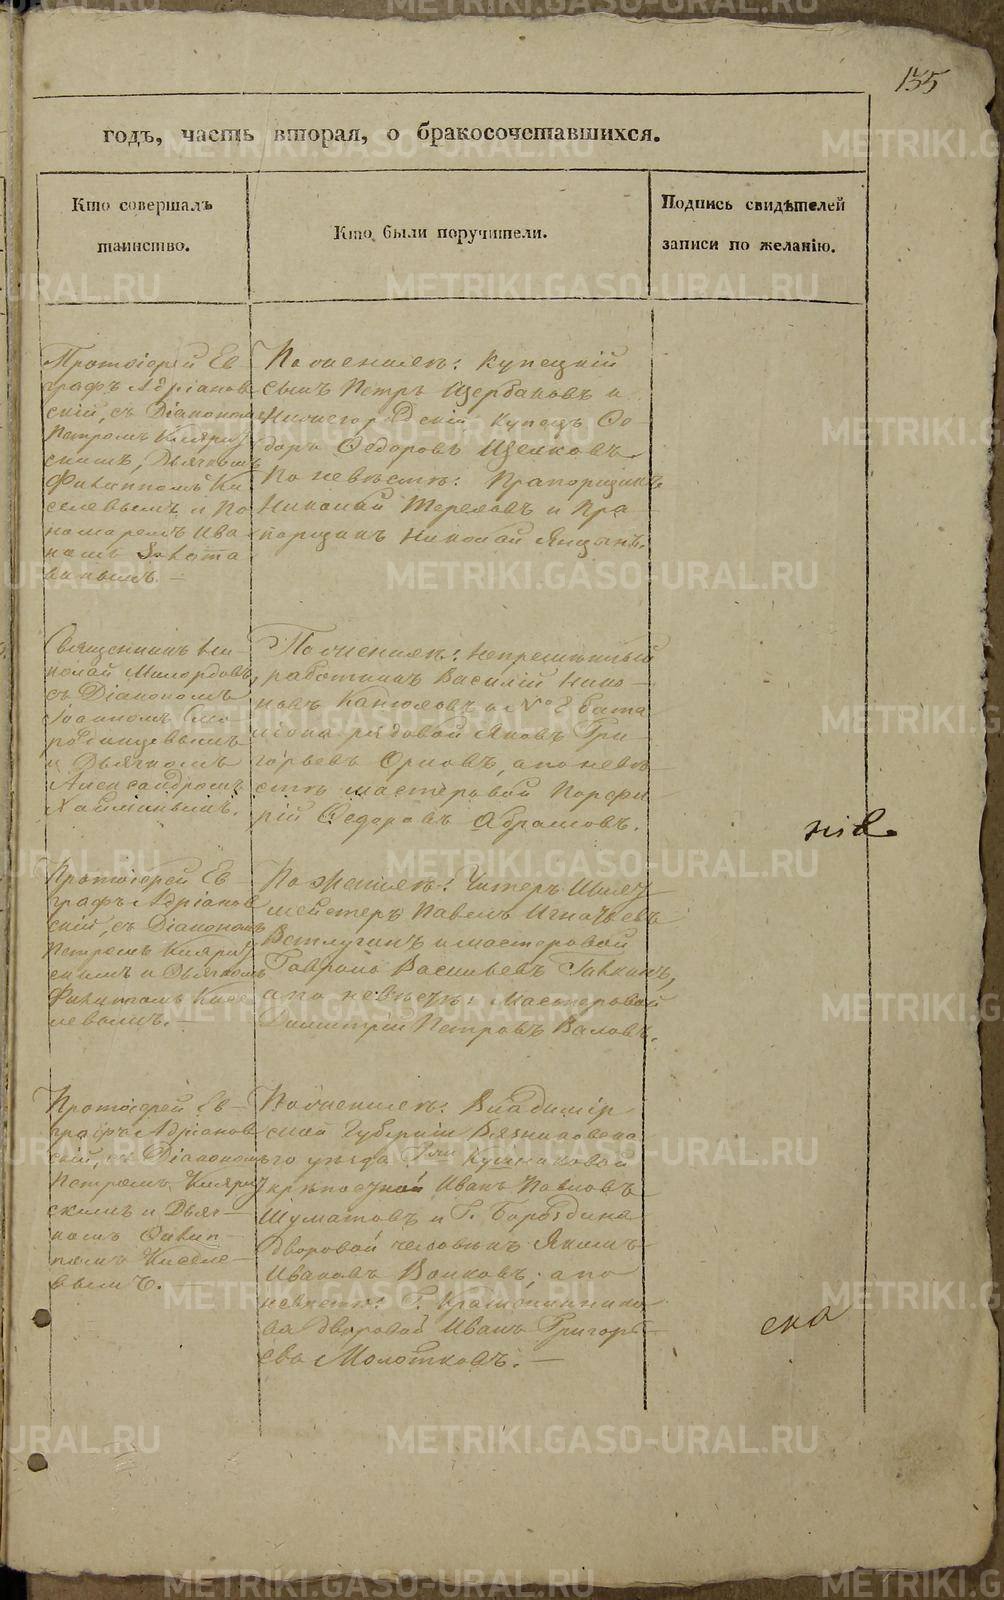 155
годъ, часть вторая, о бракосочетавшихся.
Кто совершалъ
таинство.
Кто были поручители.
Подпись свидѣтелей
записи по желанію.
Протоіерей Ев-
графъ Адріанов
скій, съ Діакономъ
Петромъ Киприя
скимъ, Дьячкомъ
Филиппомъ Ки
селевымъ и По
номаремъ Ива
номъ
По женихѣ: Купецкій
сынъ Петръ Щербаковъ и
Нижегородскій купецъ Ѳе-
доръ Ѳедоровъ Щелковъ.
По невѣстѣ: Прапорщикъ
Николай Тереховъ и Пра-
порщикъ Николай
Священникъ Ни-
колай
съ Діакономъ
Іоанномъ Ско
и Дьячкомъ
Александромъ
По женихѣ: непремѣнный
работникъ Василій Нико-
новъ и № 8 бата
ліона рядовой Яковъ Гри-
горьевъ Орловъ, а по невѣ-
стѣ мастеровой Порфи-
рій Ѳедоровъ Абрамовъ.
нія
Протоіерей Ев-
графъ Адріанов
скій, съ Діакономъ
Петромъ Киприя
скимъ и Дьячкомъ
Филиппомъ Кисе
левымъ.
По женихѣ: Унтеръ Шихт
мейстеръ Павелъ Игнатьевъ
Ветлугинъ и мастеровой
Гаврило Васильевъ
а по невѣстѣ: Мастеровой
Димитрій Петровъ Валовъ.
Протоіерей Ев-
графъ Адріанов
скій, съ Діакономъ
Петромъ Киприя
скимъ и Дьяч-
комъ Филип-
помъ Киселе-
вымъ.
По женихѣ: Владимір
ской Губерніи Вязниковска
го уѣзда Гжи
крѣпостной Иванъ Павловъ
Шуматовъ и Г. Бородина
дворовой человѣкъ Якимъ
Ивановъ Волковъ; а по
невѣстѣ: Г.
ва дворовой Иванъ Григорь-
евъ Молотковъ.
ска
METRIKI.GASO-URAL.RU